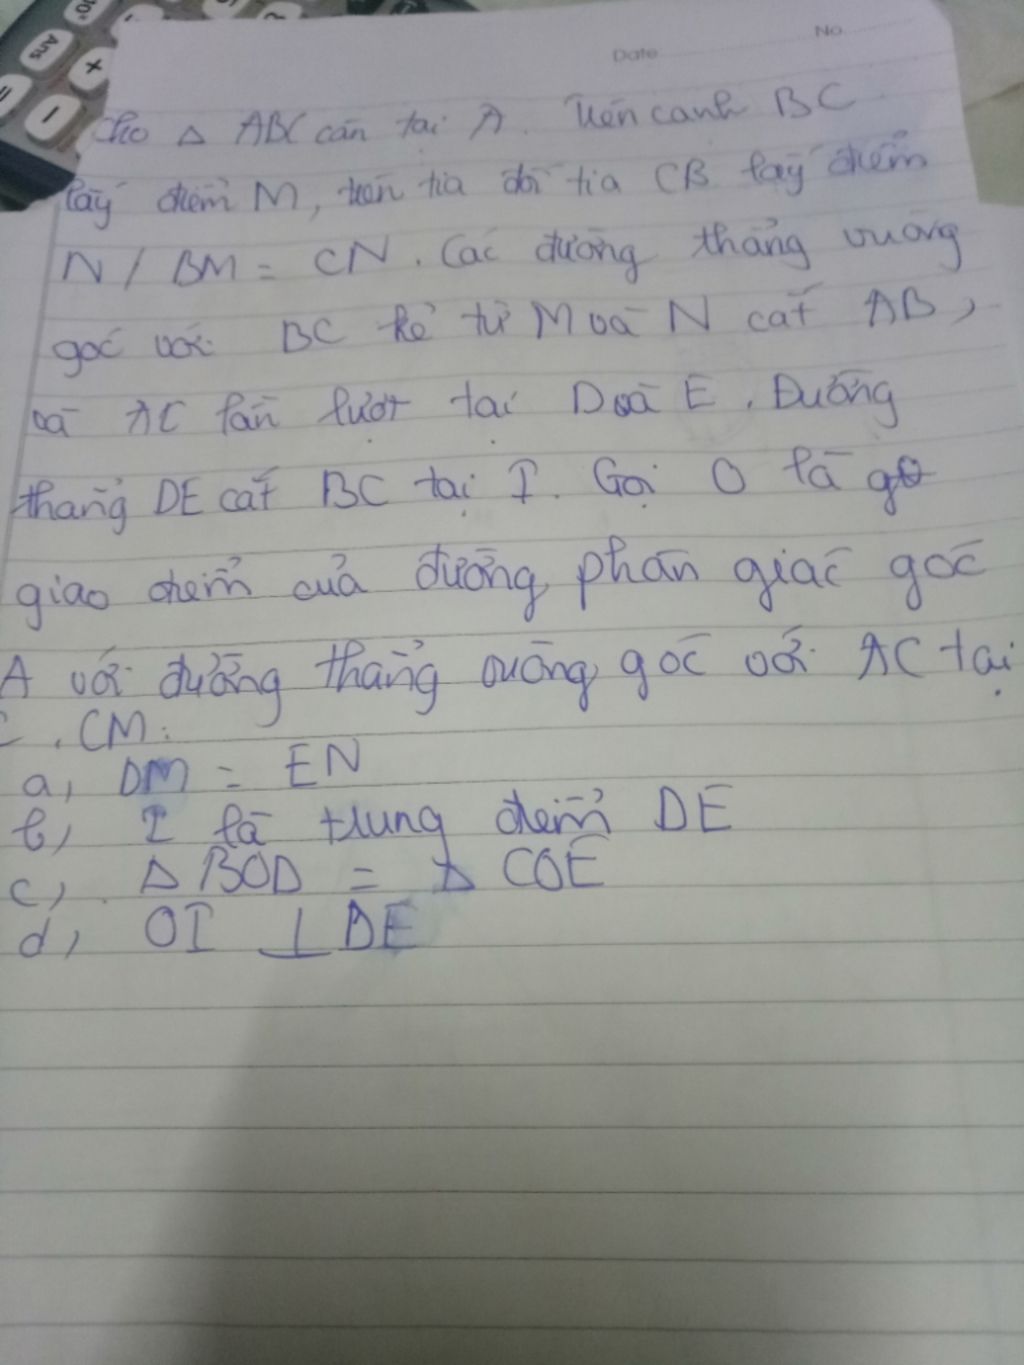 Ans
+
=
-
No
Date
Cho Δ ABC cân tại A. Trên cạnh BC
lấy điểm M, trên tia đối tia CB lấy điểm
N / BM = CN. Các đường thẳng vuông
góc với BC kẻ từ M và N cắt AB,
và AC lần lượt tại D và E. Đường
thẳng DE cắt BC tại I. Gọi O là
giao điểm của đường phân giác góc
A với đường thẳng vuông góc với AC tại
C. CM:
a, DM = EN
b, I là trung điểm DE
c, Δ BOD = Δ COE
d, OI ⊥ DE